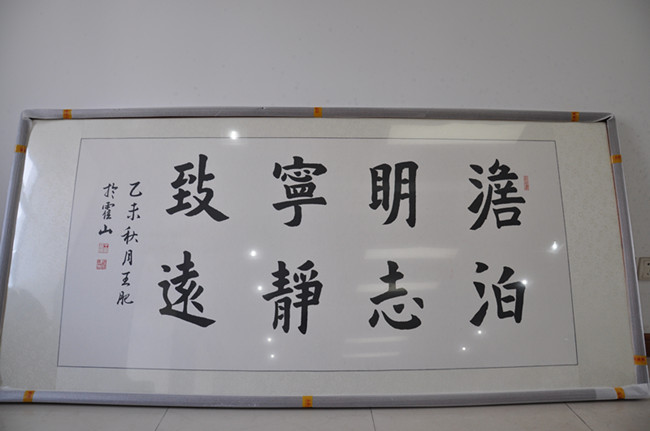 澹泊
明志
寧靜
致遠
乙未秋月王肥
於霍山